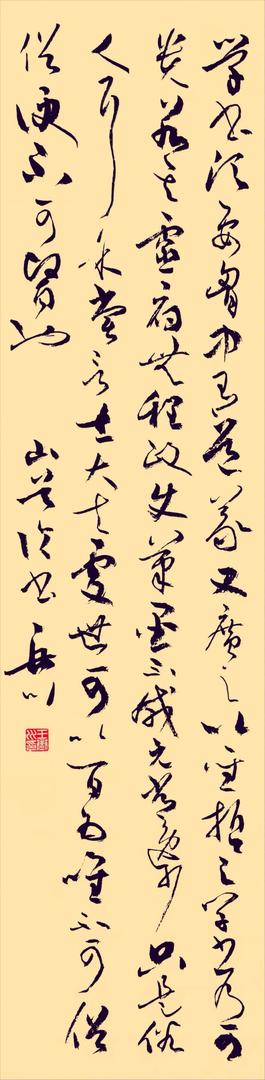 学書須要胸中有道義又廣之以聖哲之学書乃可
貴若其靈府無程政使筆墨不減元常逸少只是俗
人耳余嘗言士大夫處世可以百為唯不可俗
俗便不可醫也 山谷論書 岳川